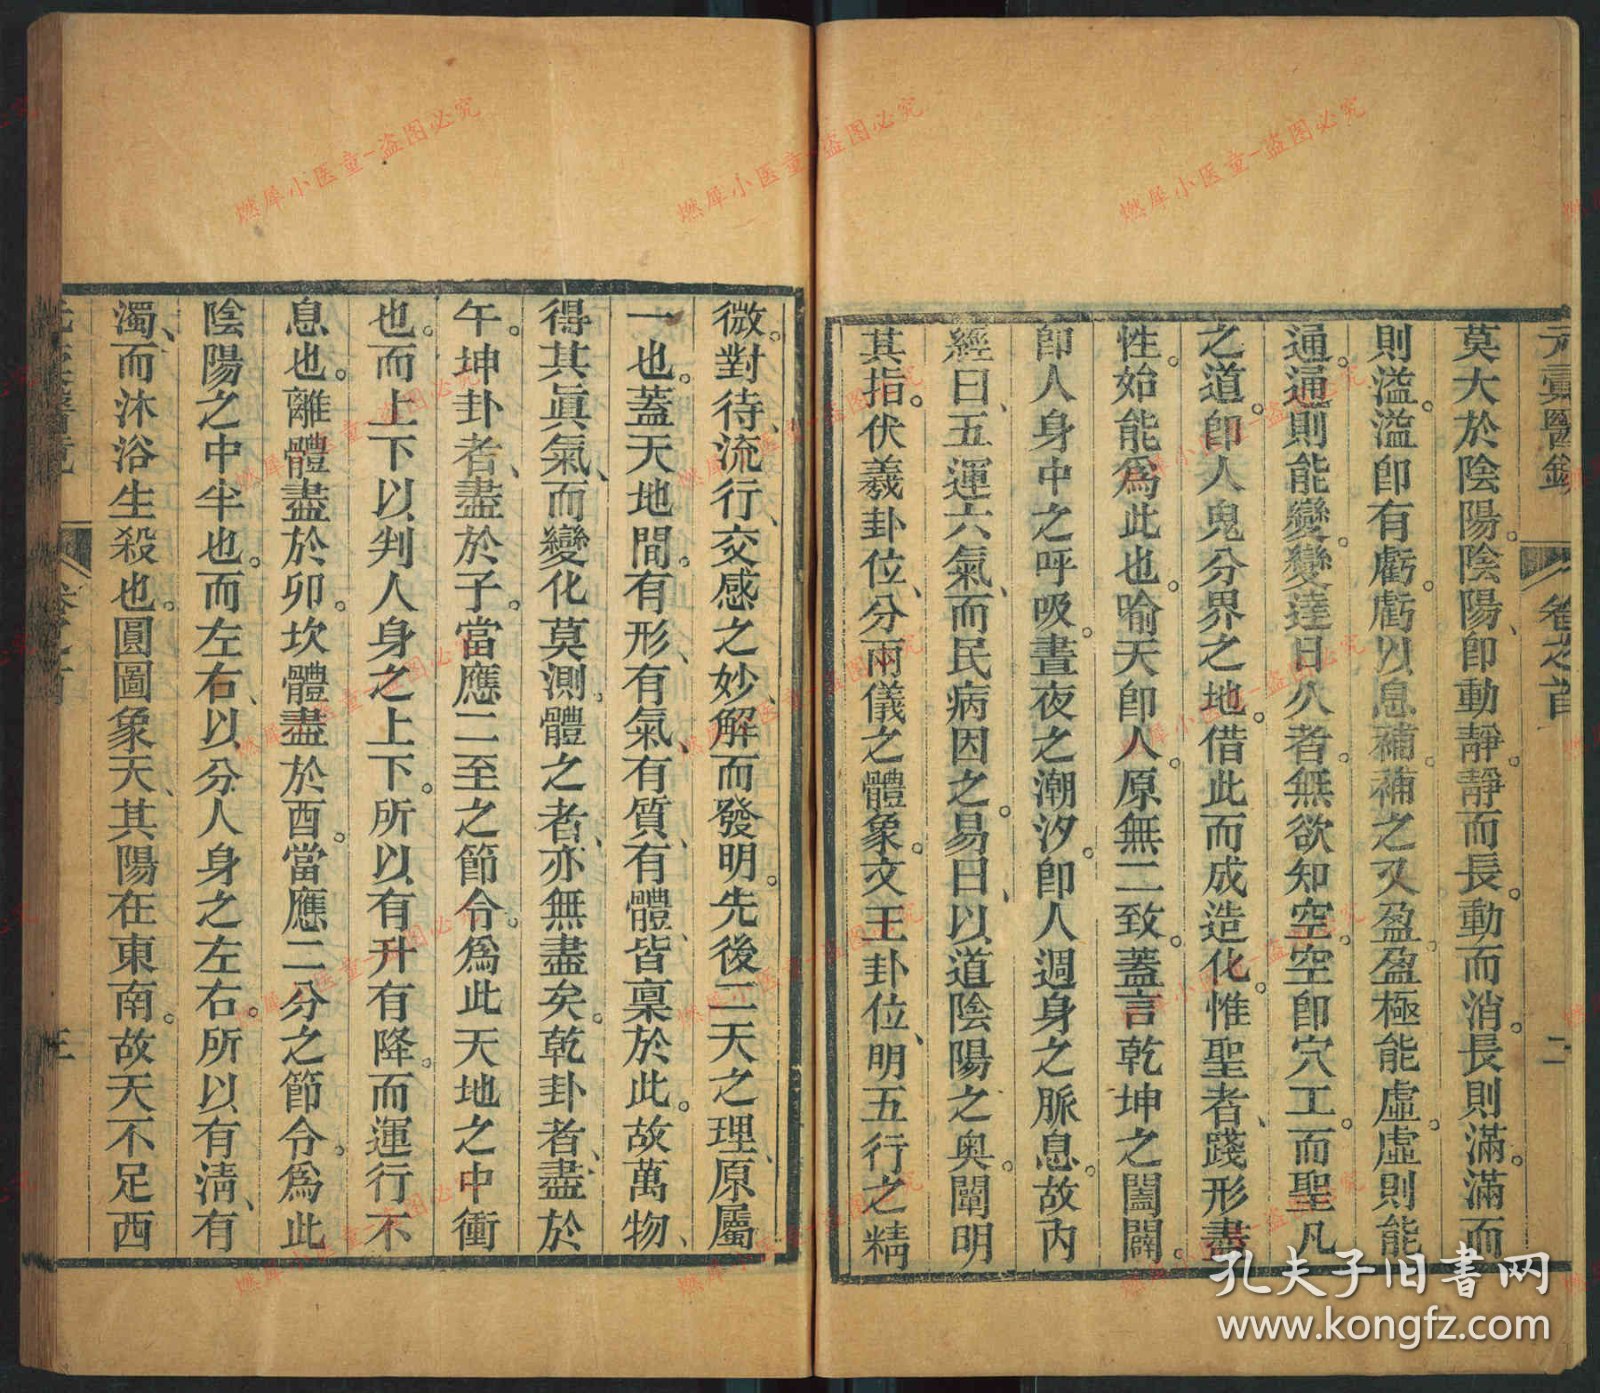 莫大於陰陽。陰陽、卽動靜。靜而長。動而消。長則滿。滿而
則溢。溢卽有虧。虧以息補。補之又盈。盈極能虛。虛則能
通。通則能變。變達日久者。無欲知空。空卽穴工。而聖凡
之道。卽人鬼分界之地。借此而成造化。惟聖者、踐形盡
性。始能爲此也。喻天卽人。原無二致。蓋言乾坤之闔闢。
卽人身中之呼吸。晝夜之潮汐。卽人週身之脈息。故內
經曰、五運六氣、而民病因之。易曰、以道陰陽之奥。闡明
其指。伏羲卦位、分兩儀之體象。文王卦位、明五行之精
卷之首
二
微。對待、流行、交感之妙、解而發明。先後二天之理、原屬
一也。蓋天地間。有形、有氣、有質、有體、皆稟於此。故萬物、
得其眞氣、而變化莫測。體之者、亦無盡矣。乾卦者、盡於
午。坤卦者、盡於子。當應二至之節令。爲此天地之中衝
也。而上下以判人身之上下。所以有升有降。而運行不
息也。離體盡於卯。坎體盡於酉。當應二分之節令。爲此
陰陽之中半也。而左右、以分人身之左右。所以有淸、有
濁、而沐浴生殺也。圓圖象天、其陽在東南。故天不足西
三
燃犀小医童-盗图必究
孔夫子旧书网
www.kongfz.com